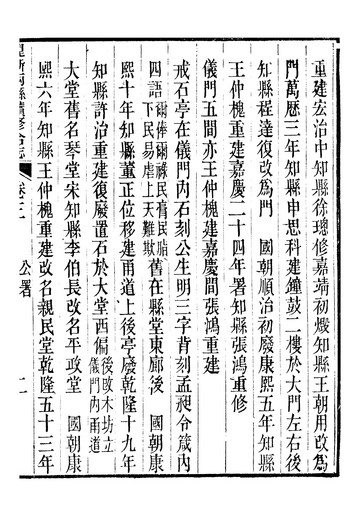 重建宏治中知縣徐璁修嘉靖初燬知縣王朝用改爲
門萬厯三年知縣申思科建鐘鼓二樓於大門左右後
知縣程達復改爲門　國朝順治初廢康熙五年知縣
王仲槐重建嘉慶二十四年署知縣張鴻重修
儀門五間亦王仲槐建嘉慶間張鴻重建
戒石亭在儀門內石刻公生明三字背刻孟昶令箴內
四語爾俸爾祿民膏民脂下民易虐上天難欺舊在縣堂東廊後　國朝康
熙十年知縣董正位移建甬道上後亭廢乾隆十九年
知縣許治重建復廢置石於大堂西偏後改木坊立儀門內甬道
大堂舊名琴堂宋知縣李伯長改名平政堂　國朝康
熙六年知縣王仲槐重建改名親民堂乾隆五十三年
崑新兩縣續修合志
卷三
公署
二